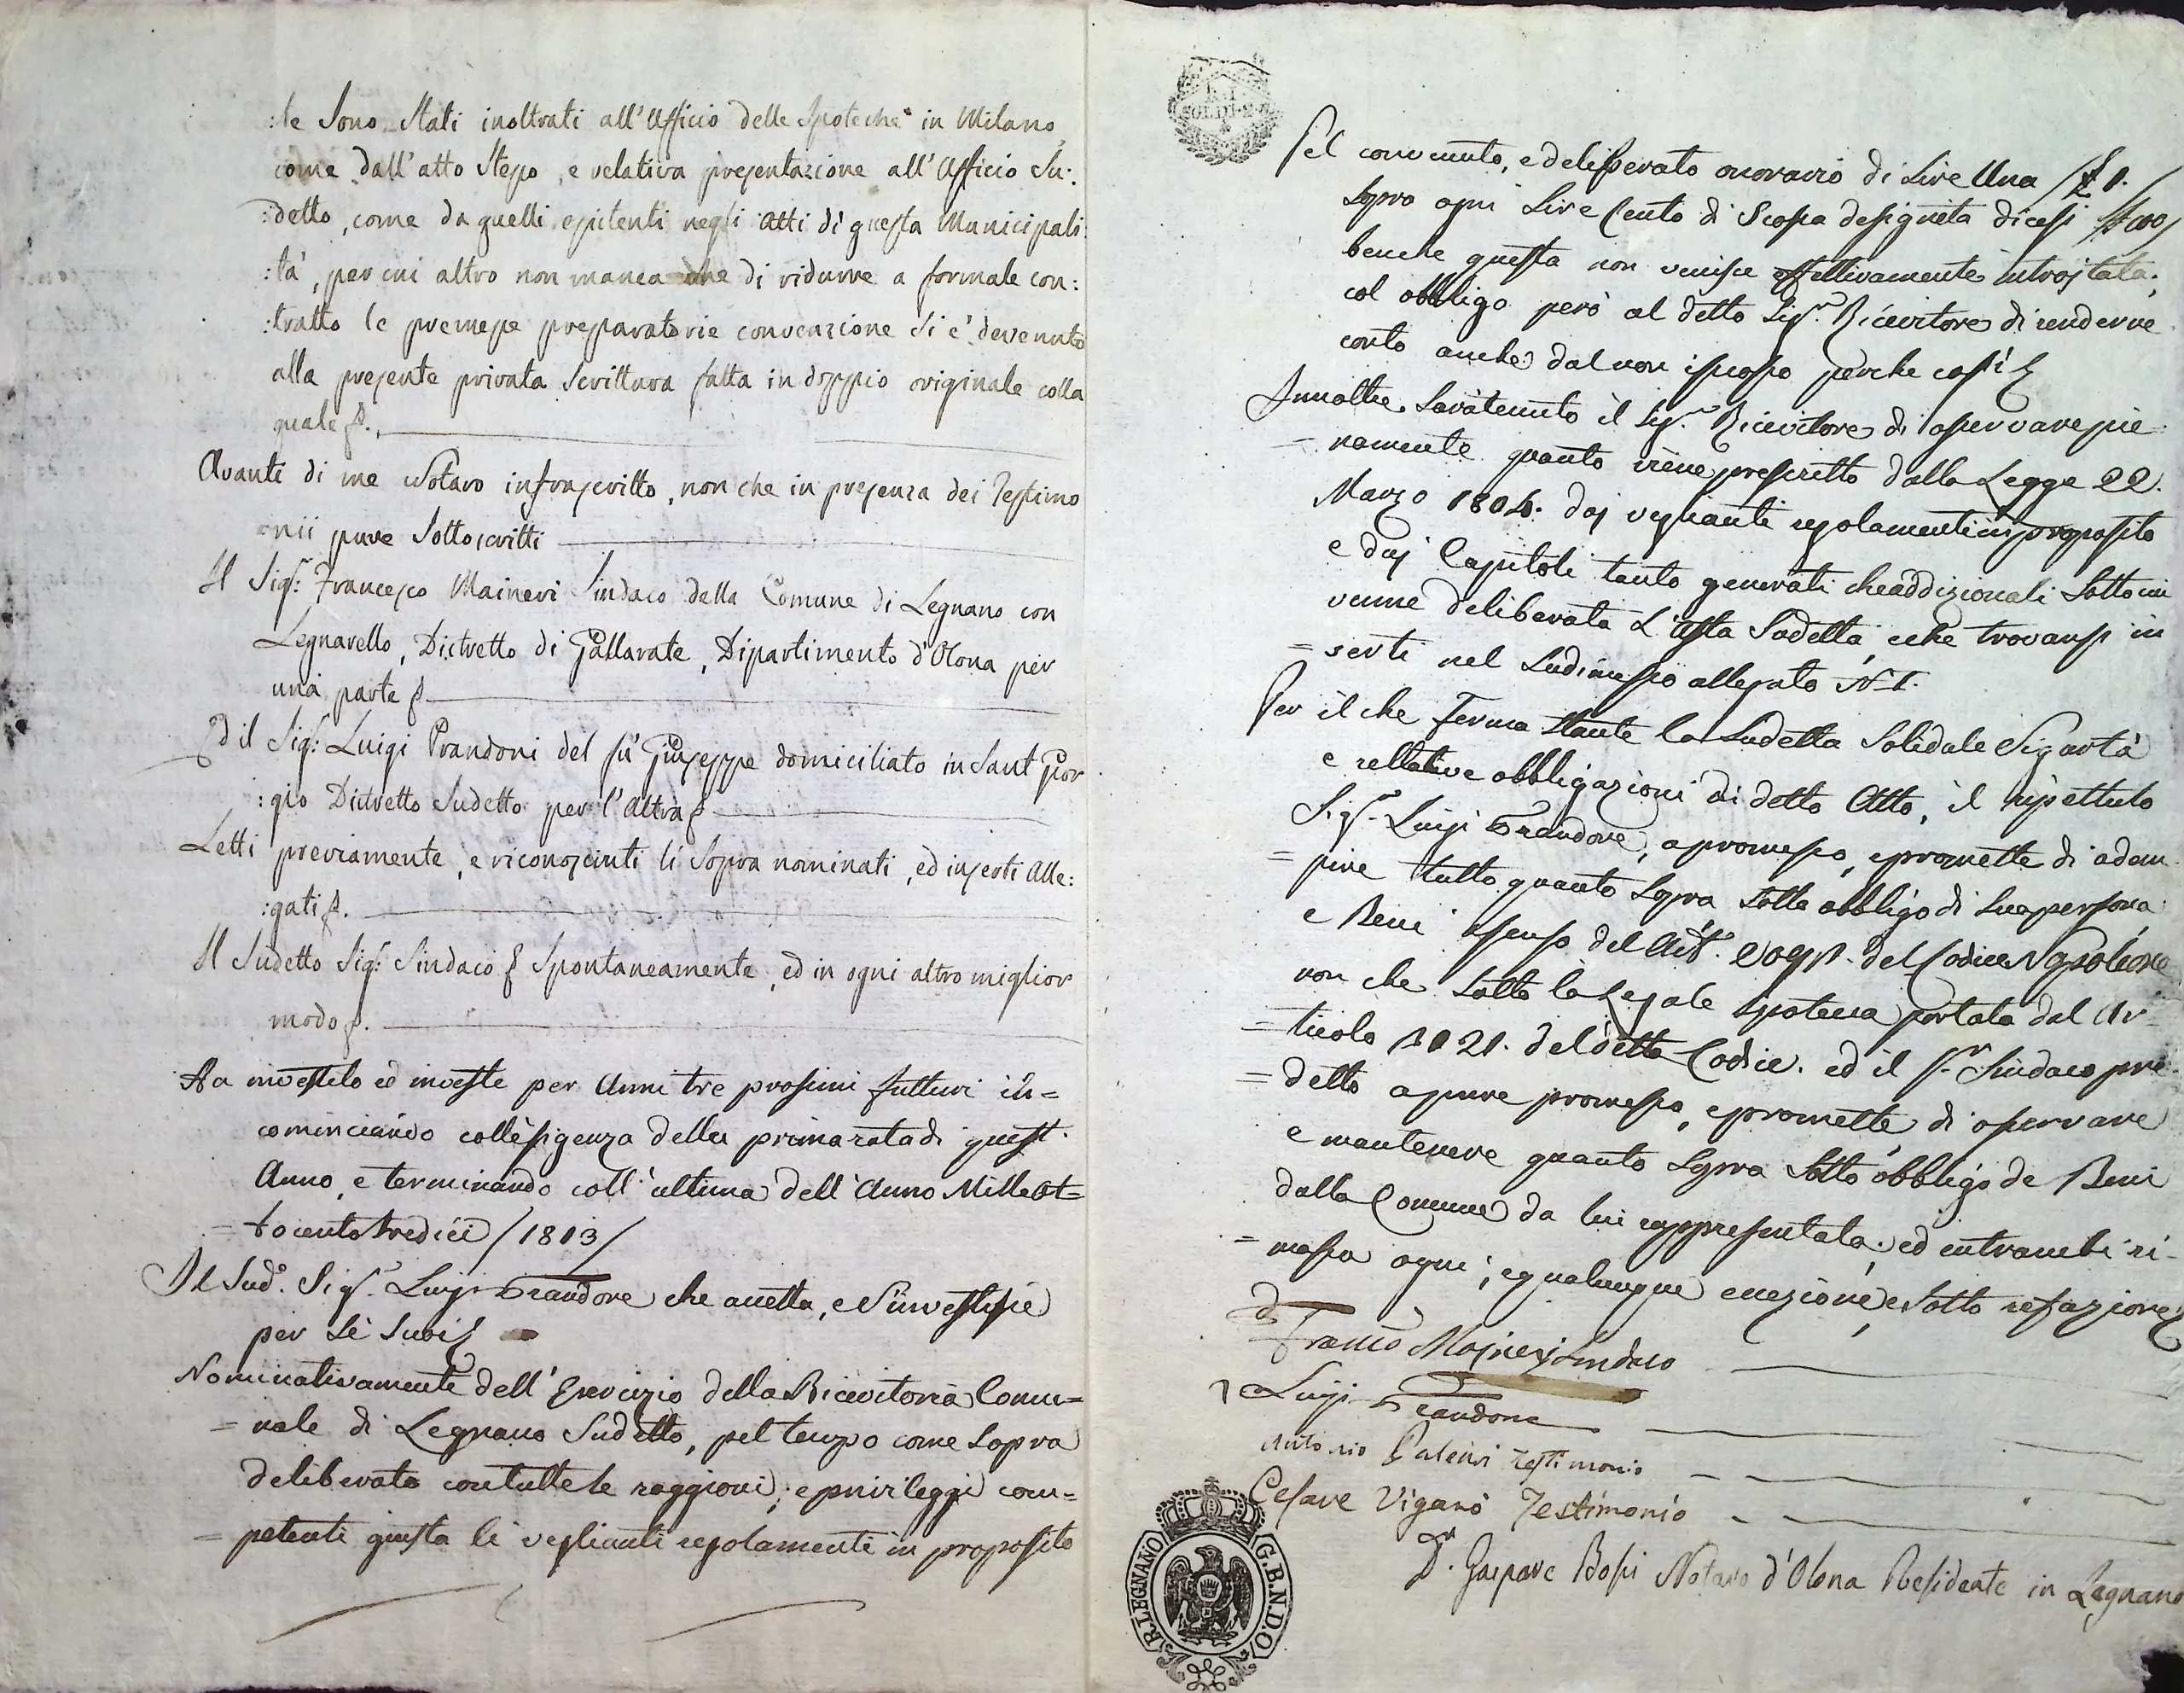 :le sono Stati inoltrati all'Ufficio delle Ipoteche in Milano
come dall'atto Stesso, e relativa presentazione all'Officio Su:
:detto, come da quelli esistenti negli Atti di questa Municipali:
:tà, per cui altro non manca che di ridurre a formale con:
:tratto le premesse preparatorie convenzione si è devenuto
alla presente privata Scrittura fatta in doppio originale colla
quale &.
Avanti di me Notaro infrascritto, non che in presenza dei Testimo
onii pure Sottoscritti
Il Sigr: Francesco Maineri Sindaco della Comune di Legnano con
Legnarello, Distretto di Gallarate, Dipartimento d'Olona per
una parte &
Ed il Sigr: Luigi Prandoni del fu Giuseppe domiciliato in Sant Gior
:gio Distretto Sudetto per l'Altra &
Letti previamente, e riconosciuti li Sopra nominati, ed inserti Alle:
:gati &.
Il Sudetto Sigr: Sindaco & Spontaneamente, ed in ogni altro miglior
modo &.
Ha investito ed investe per Anni tre prossimi futturi in=
cominciando coll'esigenza della prima rata di quest
Anno, e terminando coll'ultima dell'Anno Mille ot=
=tocento tredici /1813/
Il Sudo. Sigr. Luigi Prandone che accetta, e S'investisse
per Sè Suoi &
Nominativamente dell'Esercizio della Ricevitoria Comu=
=nale di Legnano Sudetto, pel tempo come Sopra
deliberato con tutte le raggioni, e privileggi com=
=petenti giusta li veglianti regolamenti in proposito
R.I.
SOLDI
Pel convenuto, e deliberato onorario di Lire Una /£ 1./
Sopra ogni Lire Cento di Scossa designata dicesi /£ 100/
benche questa non venisse effettivamente introitata;
col obbligo però al detto Sigr. Ricevitore di renderne
conto anche dal non iscosso perche così &
Innoltre Sarà tenuto il Sigr. Ricevitore di osservare pie
=namente quanto viene prescritto dalla Legge 22.
Marzo 1804. daj veglianti regolamenti in proposito
e daj Capitoli tanto generali che addizionali Sotto cui
venne deliberata L'Asta Sudetta, e che trovansi in
=serti nel Sudimesso allegato N. I.
Per il che ferma Stante la Sudetta Solidale Sigurtà
e rellative obbligazioni di detto Atto, il ripettuto
Sigr. Luigi Prandone, a promesso, e promette di adem
=pire tutto quanto Sopra Sotto obbligo di Sua persona
e Beni a senso del Art. 2092. del Codice Napoleone
non che Sotto la Legale Ipoteca portata dal Ar=
=ticolo 2121. del detto Codice. ed il Sr. Sindaco pre
=detto a pure promesso, e promette di osservare
e mantenere quanto Sopra Sotto obbligo de Beni
dalla Comune da lui rappresentata. ed entrambi ri=
=mossa ogni, e qualunque eccezione, e Sotto refazione &
Franco Majneri Sindaco
Luigi Prandone
Antonio Testimonio
Cesare Viganò Testimonio
Dr. Gaspare Bossi Notaro d'Olona Residente in Legnano
R. LEGNANO G.B.N.D.O.